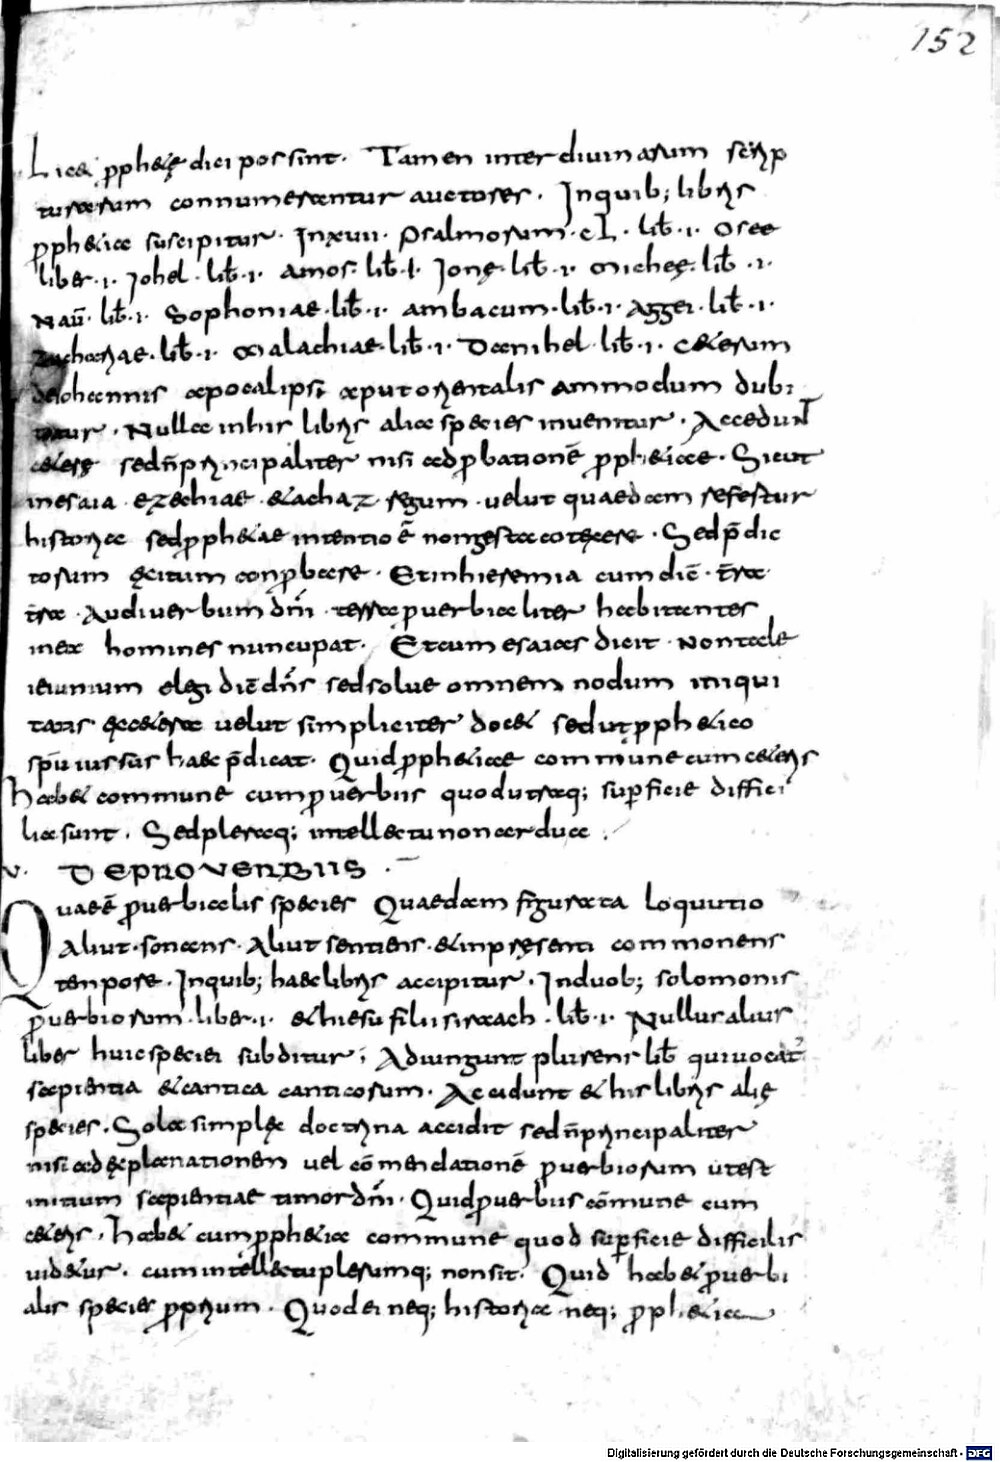 152
Licet ꝓphetię dici possint. Tamen inter divinarum scrip
turarum connumerantur auctores. In quib; libris
ꝓphetica suscipitur. In xvii. Psalmorum .cl. lib̄ .i. Osee
liber .i. Johel. lib̄ .i. Amos. lib̄ .i. Jonę. lib̄ .i. Micheę. lib̄ .i.
Naū. lib̄ .i. Sophoniae. lib̄ .i. Ambacum. lib̄ .i. Aggei. lib̄ .i.
Zachariae. lib̄ .i. Malachiae. lib̄ .i. Danihel. lib̄ .i. Ceterum
de iohannis apocalipsi aput orientalis ammodum dubi
tatur. Nulla in his libris alia species invenitur. Accedunt
ceterę sed n̄ principaliter nisi ad ꝓbationē ꝓpheticae. Sicut
in esaia ezechiae et achaz regum velut quaedam refertur
historia sed ꝓphetiae intentio ē non gesta cotęxere. Sed p̄dic
torum ęxitum conꝓbare. Et in hieremia cum diē. t̄ra
t̄ra. Audi verbum dn̄i. terra ꝓverbialiter habitantes
in ea homines nuncupat. Et cum esaias dicit. Non tale
ieiunium elegi diē dn̄s sed solve omnem nodum iniqui
tatis ęt cetera velut simpliciter docet sed ut ꝓphetico
sp̄u iussus haec p̄dicat. Quid ꝓpheticae commune cum ceteris
habet commune cum ꝓverbiis quod utraq; suꝑficie diffici
lia sunt. Sed pleraq; intellectu non ardua.
V. DE PROVERBIIS.
Quae ē ꝓverbialis species Quaedam figurata loquutio
Aliut sonans. Aliut sentiens. et in pręsenti commonens
tenpore. In quib; haec libris accipitur. In duob; solomonis
ꝓverbiorum. liber .i. et hiesu filii sirach. lib̄ .i. Nullus alius
liber huic speciei subditur; Adiungunt plures lib̄ qui vocat̄
sapientia et cantica canticorum. Accidunt et his libris alię
species. Sola simplęx doctrina accidit sed n̄ principaliter
nisi ad ęxplanationem vel cōmendationē ꝓverbiorum ut est
initium sapientiae timor dn̄i. Quid ꝓverbiis cōmune cum
ceteris. Habet cum ꝓphetica commune quod suꝑficie difficilis
videtur. cum intellectu plerumq; non sit. Quid habet ꝓverbi
alis species ꝓprium. Quod ei neq; historia neq; ꝓphetica
Digitalisierung gefördert durch die Deutsche Forschungsgemeinschaft - DFG